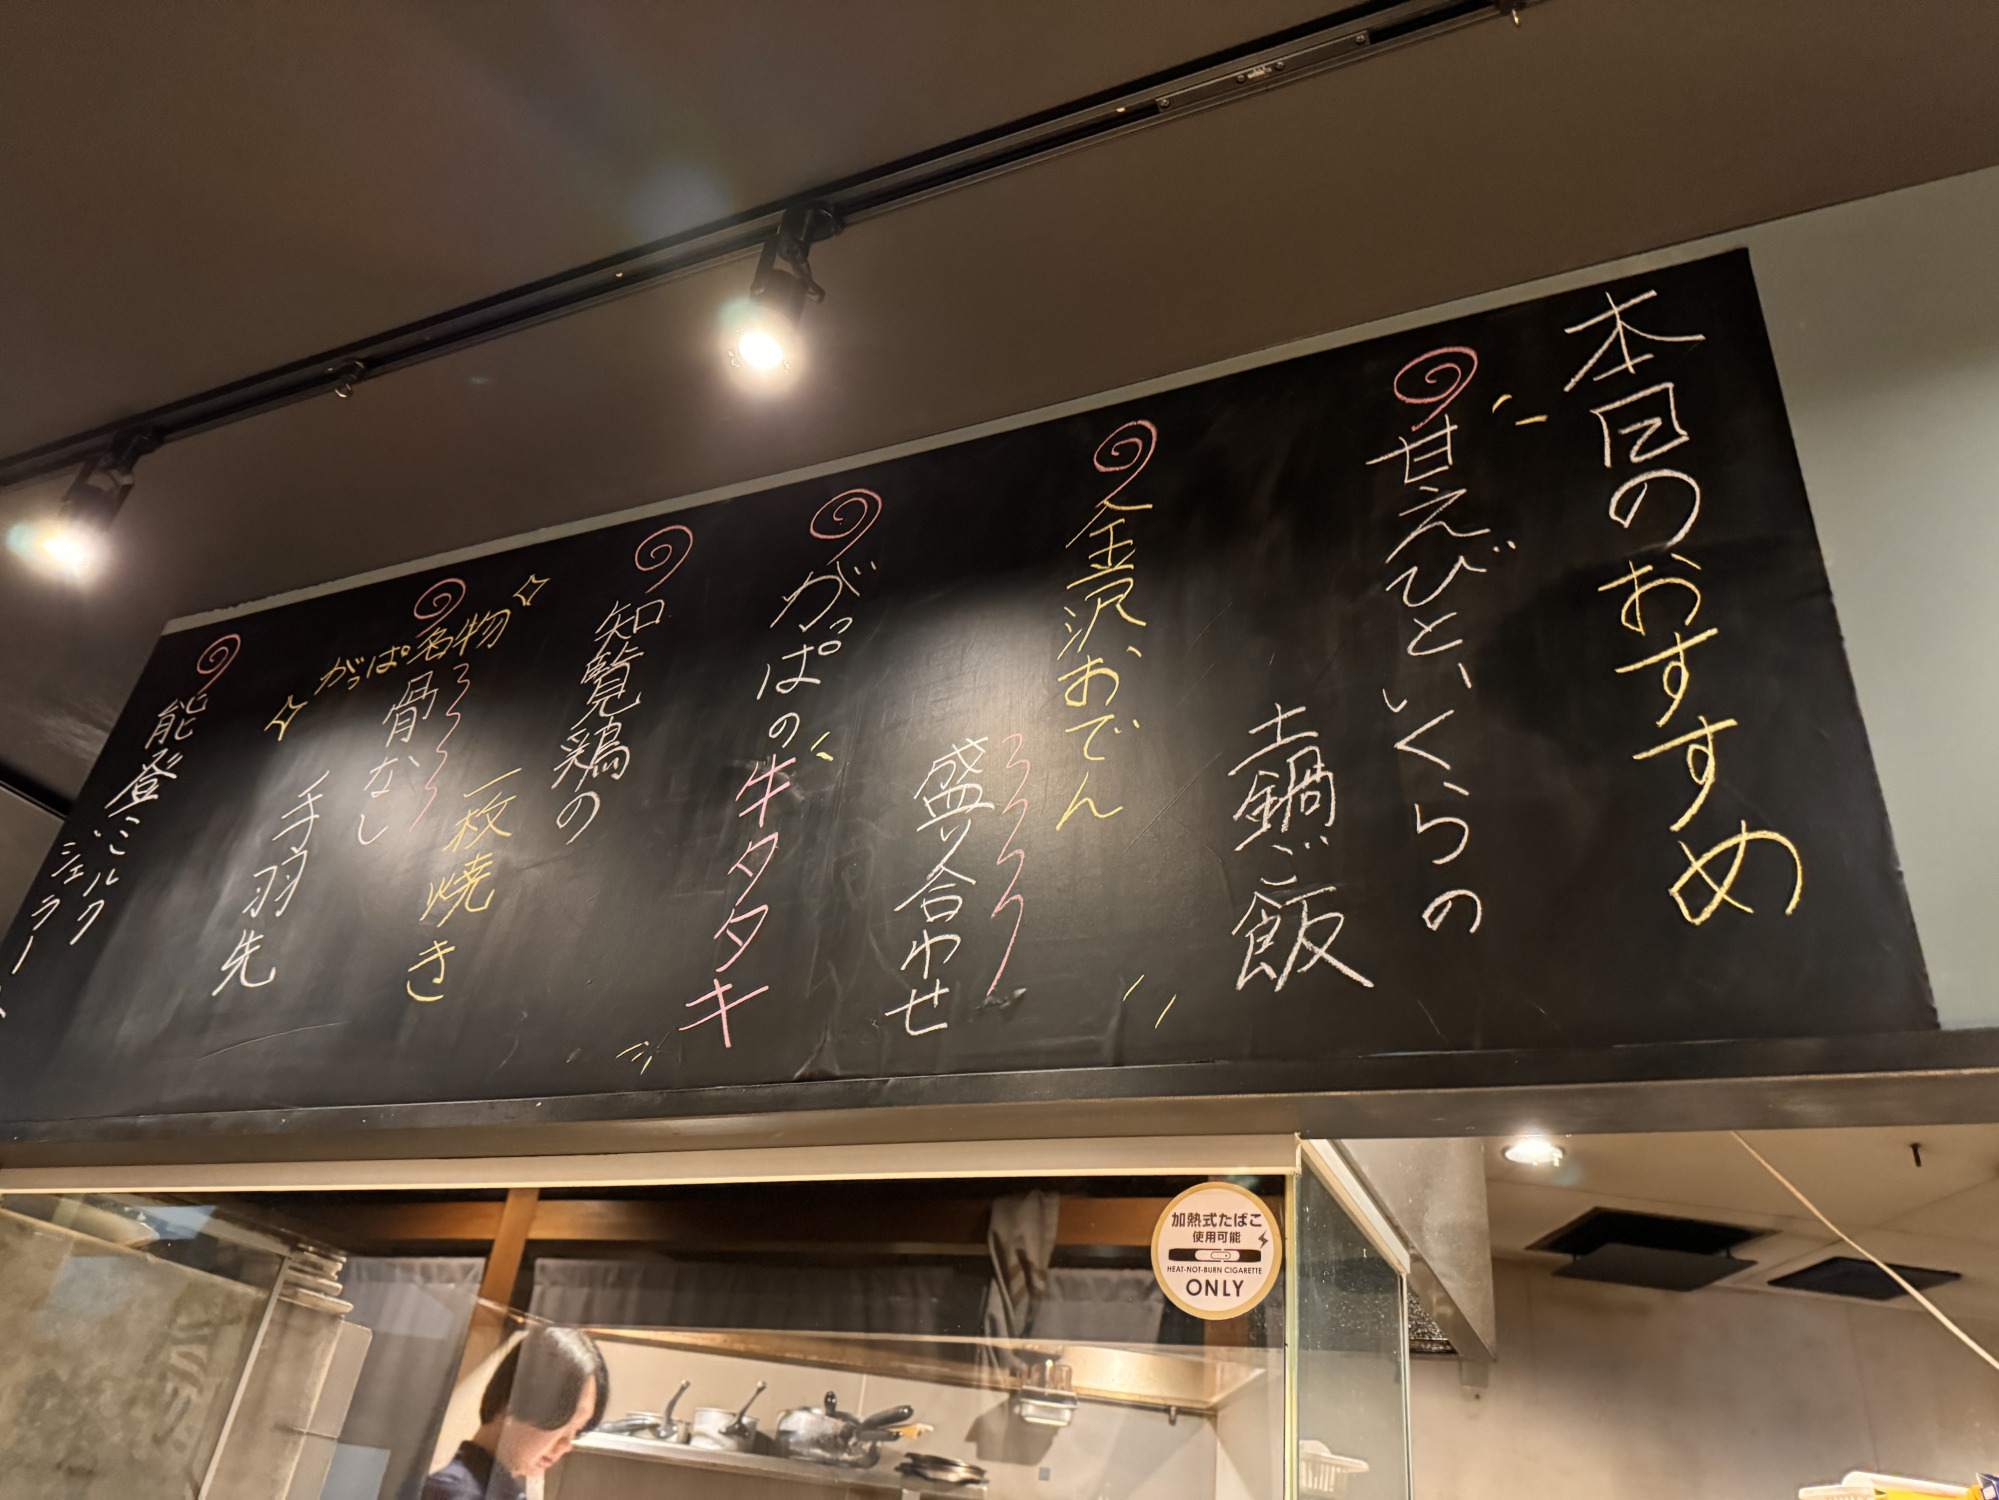 本日のおすすめ
甘えびと、いくらの
土鍋ご飯
金沢おでん
盛り合わせ
がっぱの牛タタキ
知覧鶏の
一枚焼き
がっぱ名物
骨なし
手羽先
能登ミルク
ジェラート
加熱式たばこ
使用可能
HEAT-NOT-BURN CIGARETTE
ONLY